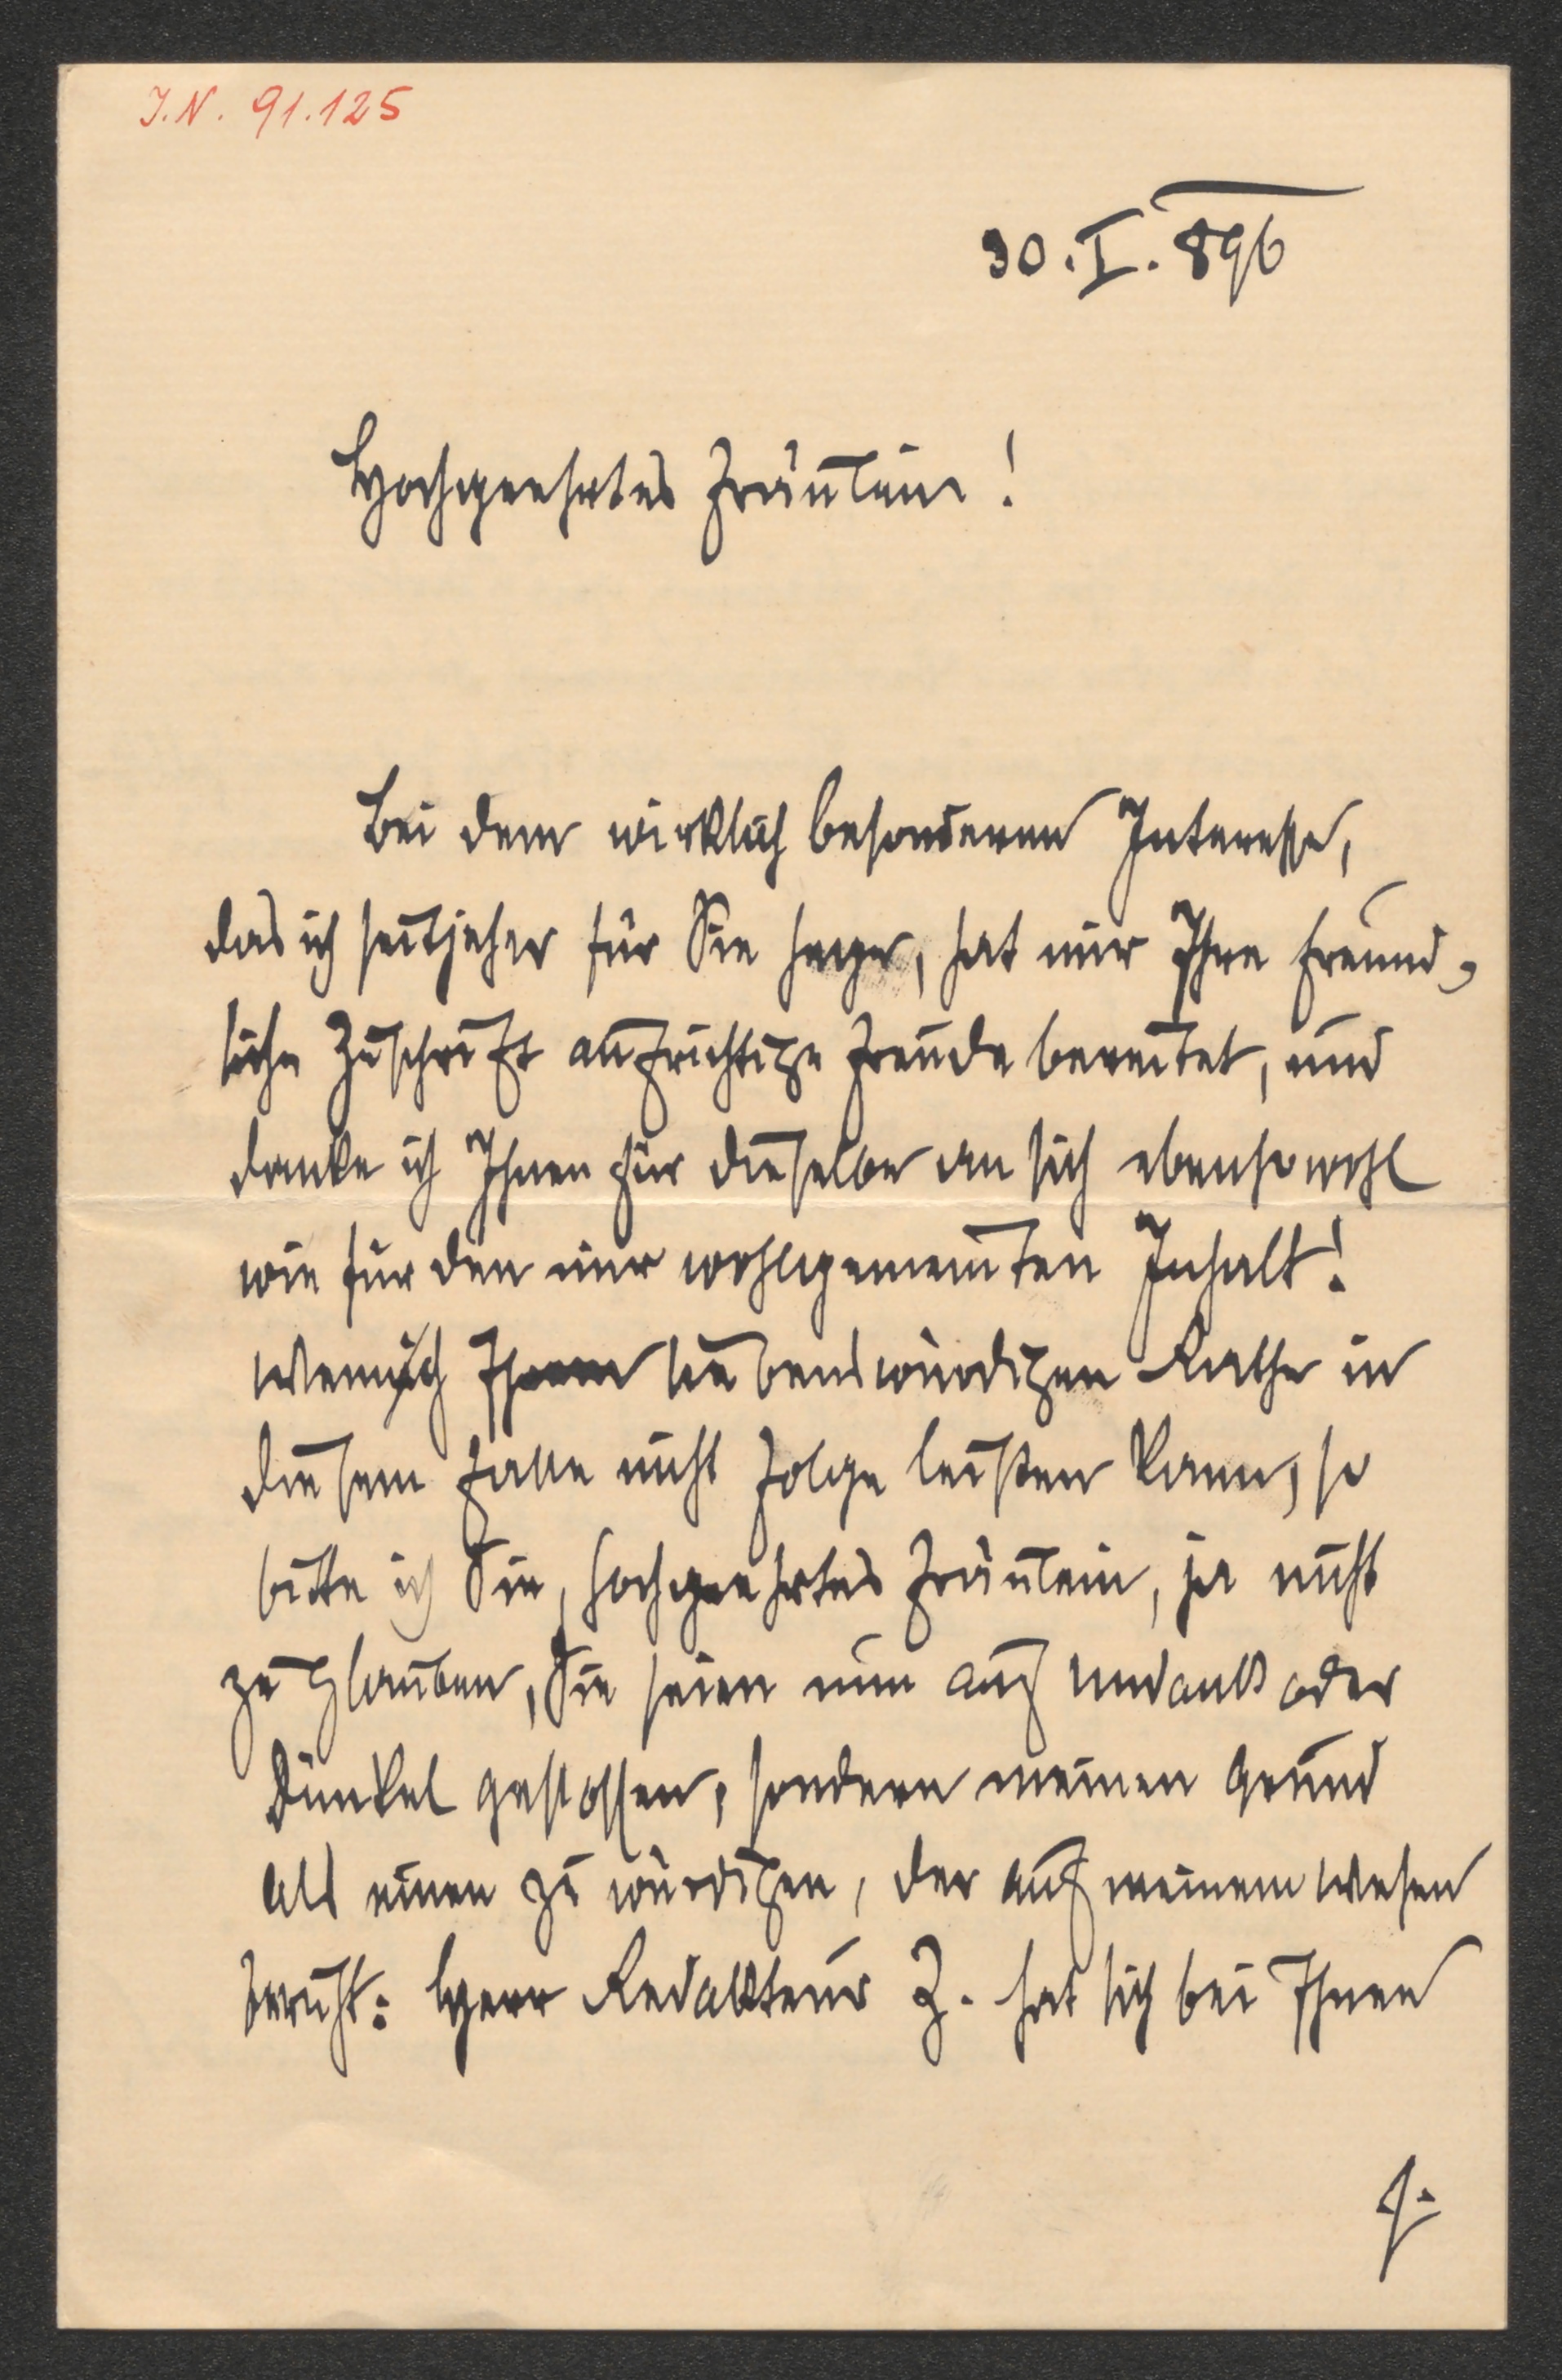 I.N. 91.125
30.I.896
Hochgeehrtes Fräulein!
Bei dem wirklich besonderen Interesse,
das ich seitjeher für Sie hege, hat mir Ihre freund-
liche Zuschrift aufrichtige Freude bereitet, und
danke ich Ihnen für dieselbe an sich ebensowohl
wie für den mir wohlgemeinten Inhalt!
Wenn ich Ihrem liebenswürdigen Rathe in
diesem Falle nicht Folge leisten kann, so
bitte ich Sie, hochgeehrtes Fräulein, ja nicht
zu glauben, Sie seien nun auf Undank oder
Dünkel gestossen, sondern meinen Grund
als einen zu würdigen, der auf meinem Wesen
beruht: Herr Redakteur Z. hat sich bei Ihnen